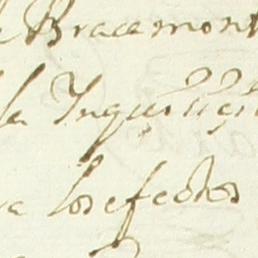 e Bracamont
la Inquissisi
va los efectos